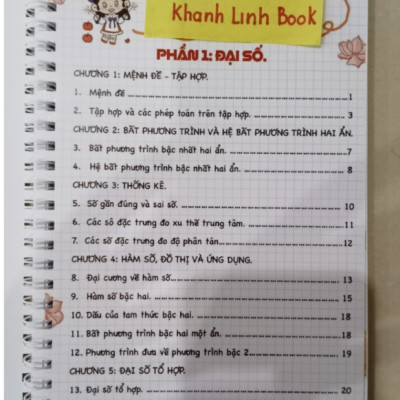 Khanh Linh Book
PHẦN 1: ĐẠI SỐ.
CHƯƠNG 1: MỆNH ĐỀ - TẬP HỢP.
1. Mệnh đề ........ 1
2. Tập hợp và các phép toán trên tập hợp. ........ 3
CHƯƠNG 2: BẤT PHƯƠNG TRÌNH VÀ HỆ BẤT PHƯƠNG TRÌNH HAI ẨN.
3. Bất phương trình bậc nhất hai ẩn. ........ 7
4. Hệ bất phương trình bậc nhất hai ẩn. ........ 8
CHƯƠNG 3: THỐNG KÊ.
5. Số gần đúng và sai số. ........ 10
6. Các số đặc trưng đo xu thế trung tâm. ........ 11
7. Các số đặc trưng đo độ phân tán ........ 12
CHƯƠNG 4: HÀM SỐ, ĐỒ THỊ VÀ ỨNG DỤNG.
8. Đại cương về hàm số ........ 13
9. Hàm số bậc hai. ........ 15
10. Dấu của tam thức bậc hai. ........ 18
11. Bất phương trình bậc hai một ẩn. ........ 18
12. Phương trình đưa về phương trình bậc 2. ........ 19
CHƯƠNG 5: ĐẠI SỐ TỔ HỢP.
13. Đại số tổ hợp. ........ 20